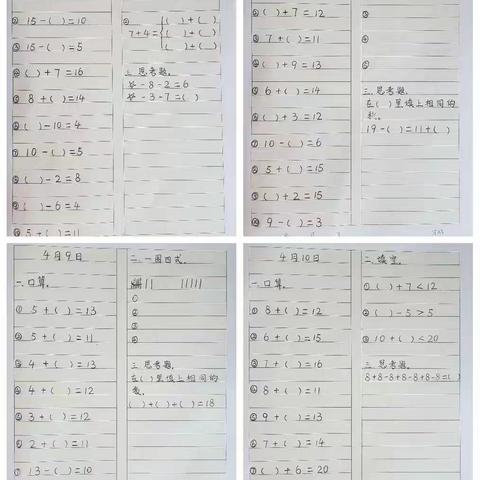 ② 15-( )=10
③ 15-( )=5
④ ( )+7=16
⑤ 8+( )=14
⑥ ( )-10=4
⑦ 10-( )=5
⑧ ( )-2=8
⑨ ( )-6=4
⑩ 5+( )=11
( )+( )
7+4= ( )+( )
( )+( )
三.思考题.
-8-2=6
-3-7=( )
② ( )+7=12
③ 7+( )=11
④ ( )+9=13
⑤ 6+( )=14
⑥ ( )+3=12
⑦ 10-( )=6
⑧ 5+( )=15
⑨ ( )+2=15
⑩ 9-( )=3
②
③
④
三.思考题.
在( )里填上相同的
19-( )=11+( )
4月9日
一.口算.
① 5+( )=13
② 5+( )=11
③ 4+( )=13
④ 4+( )=12
⑤ 3+( )=12
⑥ 2+( )=11
⑦ 13-( )=10
二.一图四式.
①
②
③
④
三.思考题.
在( )里填上相同的
数.
( )+( )+( )=18
4月10日
一.口算.
① 8+( )=12
② 6+( )=15
③ 7+( )=16
④ 8+( )=11
⑤ 9+( )=13
⑥ 7+( )=14
⑦ ( )+6=20
二.填空.
① ( )+7<12
② ( )-5>5
③ 10+( )<20
三.思考题.
8+8-8+8-8+8-8=( )